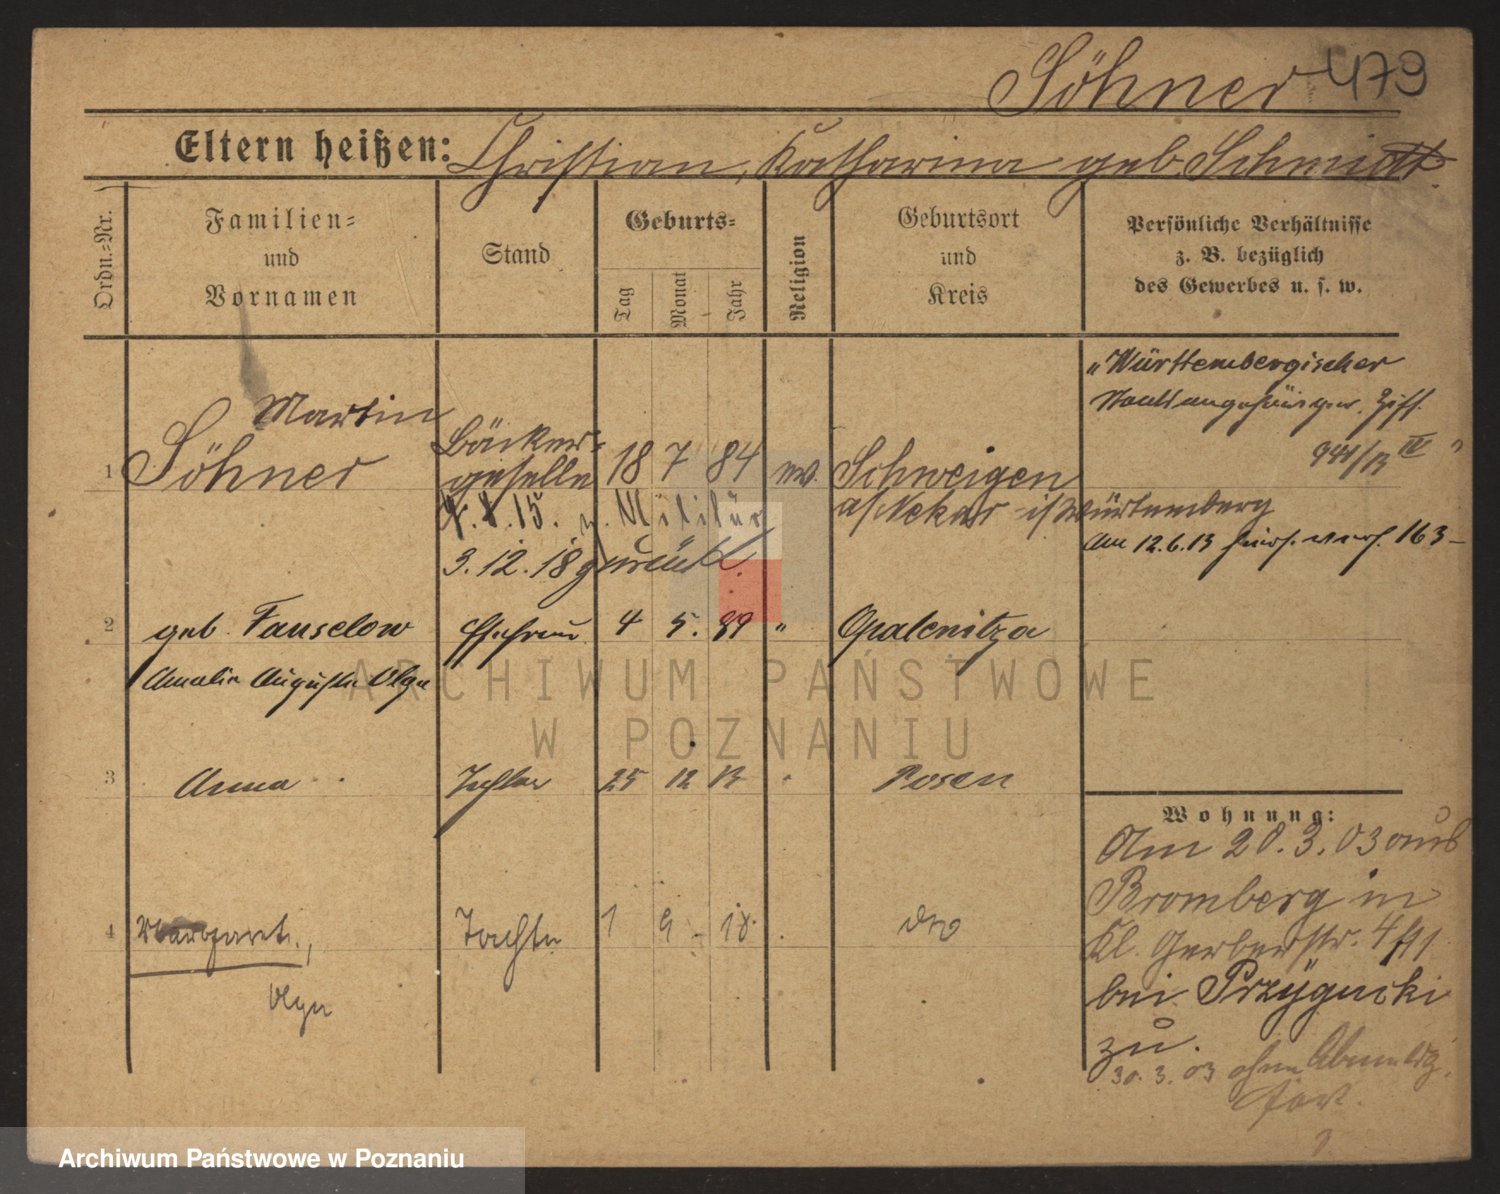 Söhner 479
Eltern heißen: Christian, Katharina geb. Schmidt
Ordn.=Nr.
Familien=
und
Vornamen
Stand
Geburts=
Tag
Monat
Jahr
Religion
Geburtsort
und
Kreis
Persönliche Verhältnisse
z. B. bezüglich
des Gewerbes u. s. w.
"Württembergischer
Staatsangehöriger.
Martin
1 Söhner Bäcker=
geselle 18 7 84 ev. Schweigen
a/Nekar i/Württemberg
15. z. Militär
3.12.18 zurück.
Am 12.6.13 163
2 geb. Fauselow Ehefrau 4 5. 89 " Opalenitza
Amalie Auguste Olga
3 Anna Tochter 25 12 13 Posen
4 Margarete, Tochter 1 9 18. dto
Olga
Wohnung:
Am 20.3.03 aus
Bromberg in
Kl. Gerberstr. 4
bei Przygucki
zu.
30.3.03 ohne Abmeldg.
fort.
ARCHIWUM PAŃSTWOWE
W POZNANIU
Archiwum Państwowe w Poznaniu